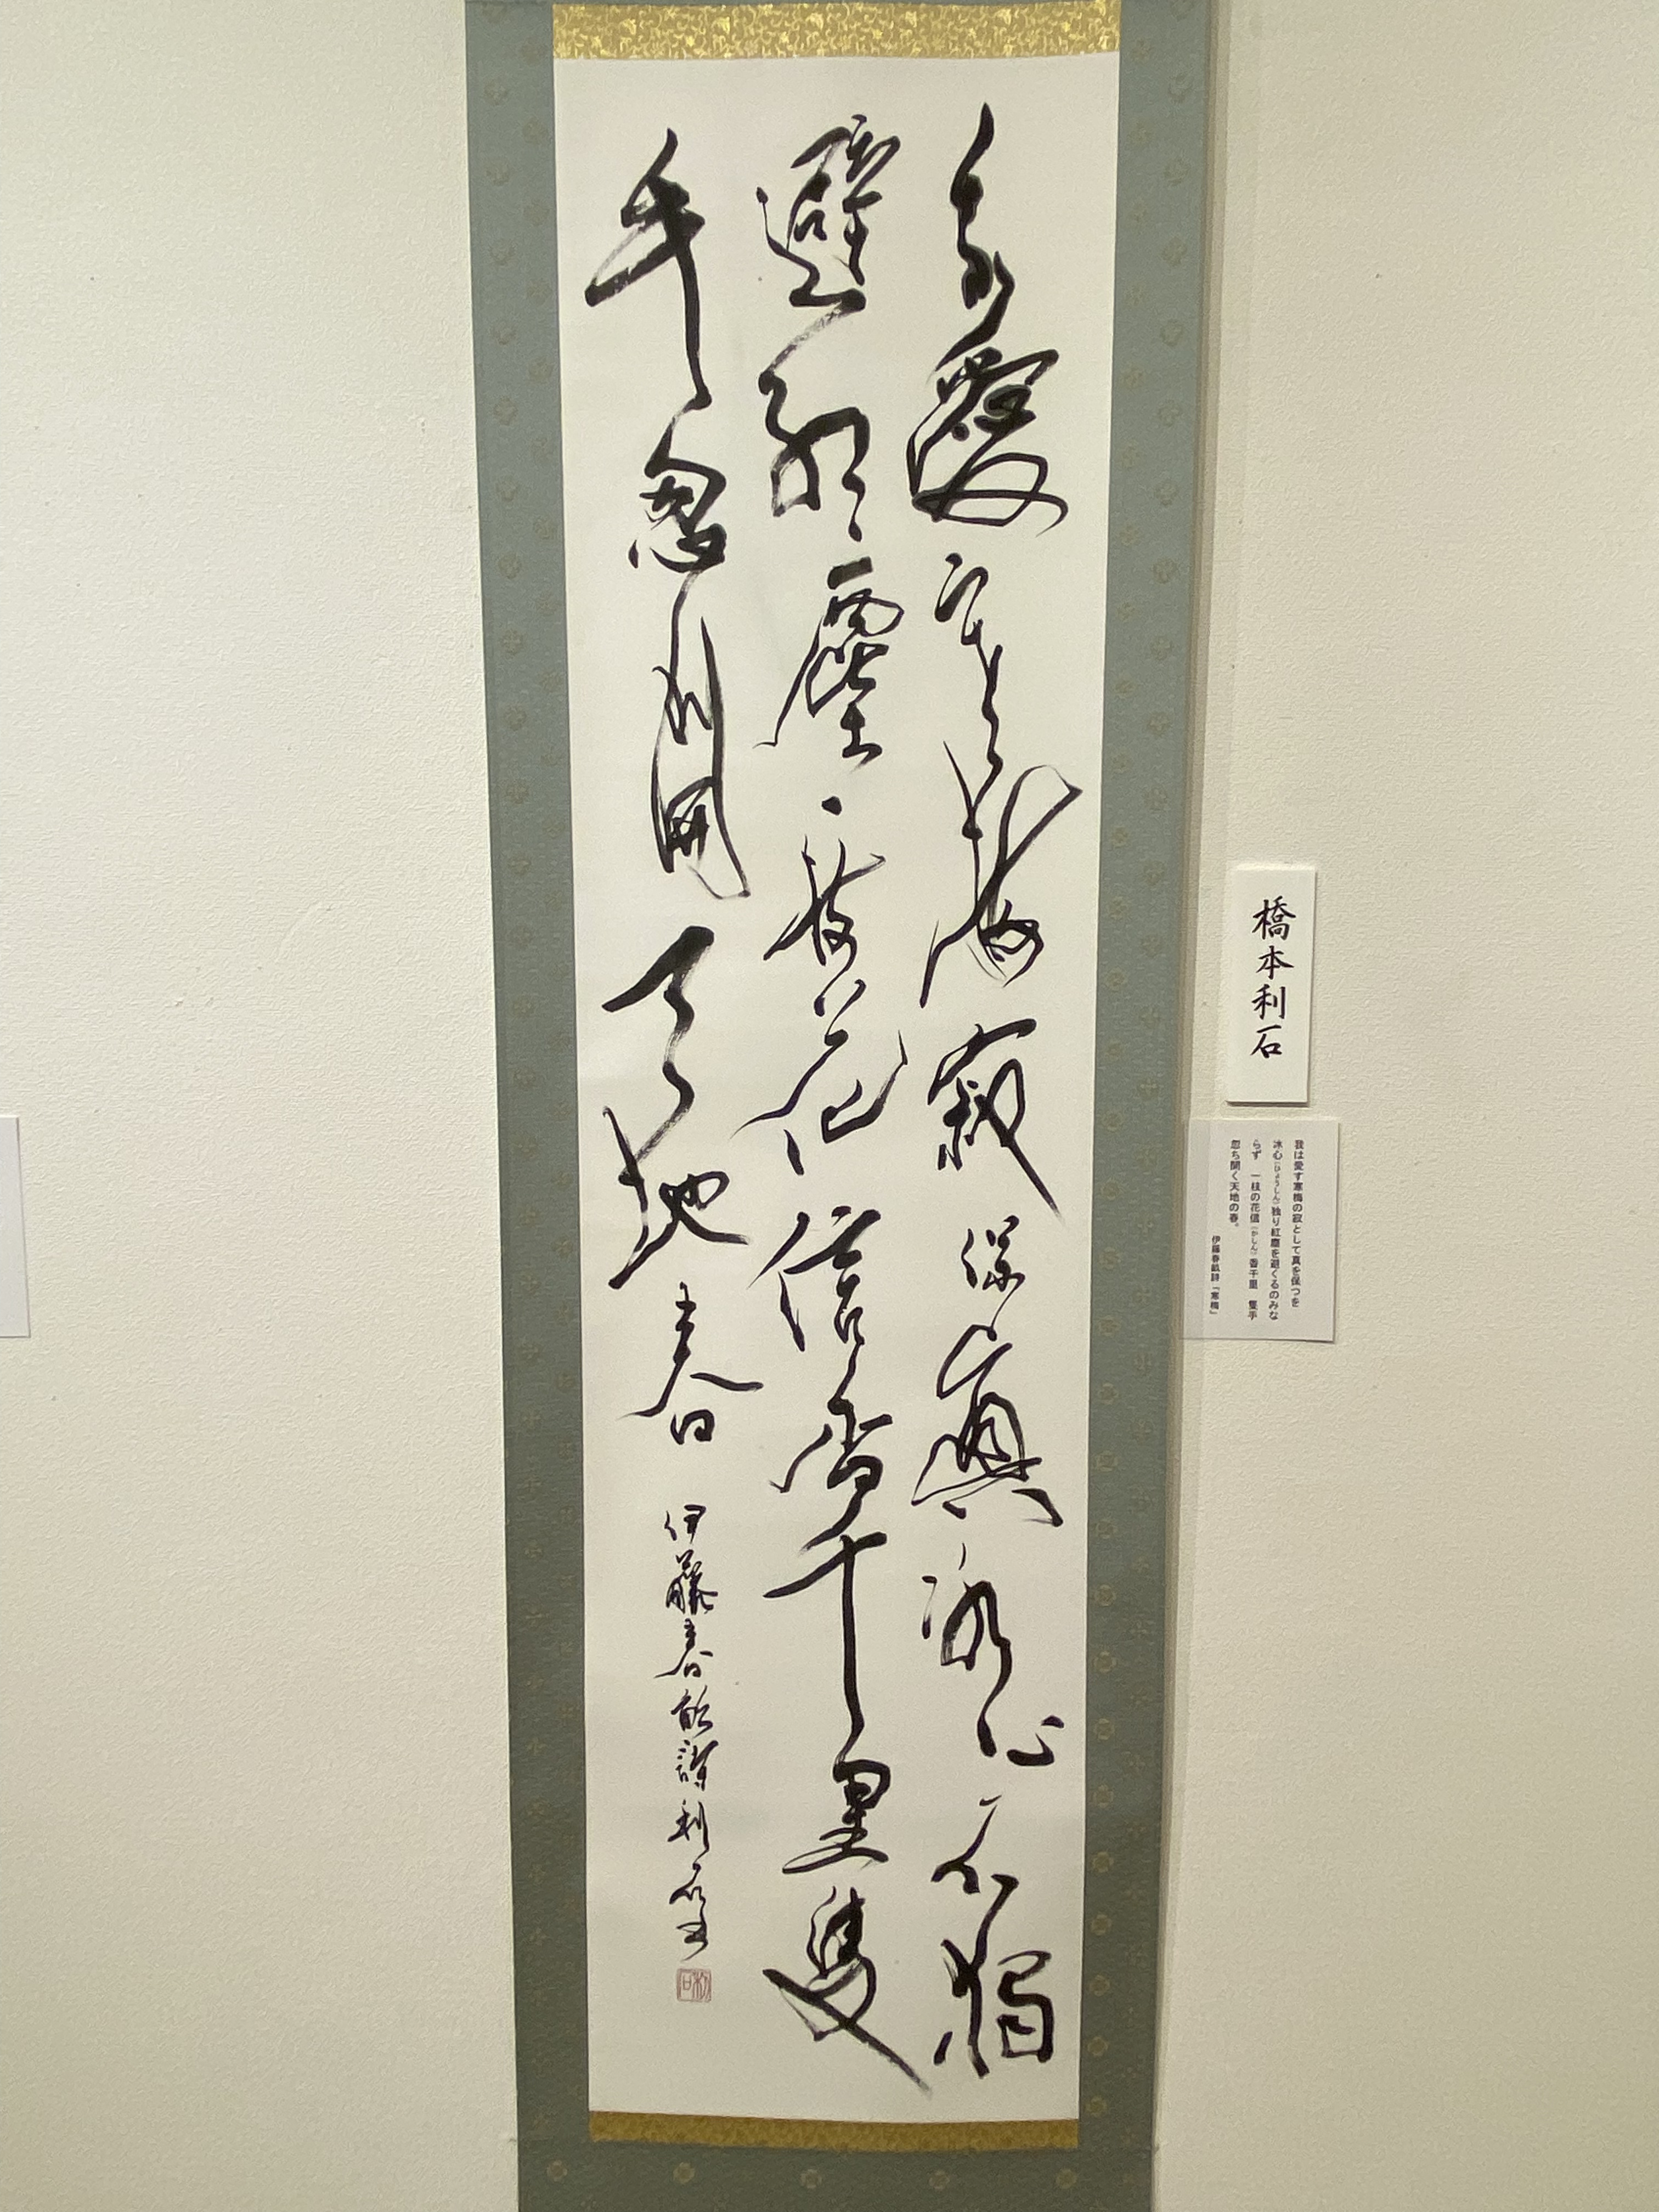 我愛寒梅寂保真冰心不獨
避紅塵一枝花信香千里隻
手忽開天地春
伊藤春畝詩 利石書
橋本利石
我は愛す寒梅の寂として真を保つを
冰心(ひょうしん)独り紅塵を避くるのみな
らず 一枝の花信(かしん)香千里 隻手
忽ち開く天地の春。
伊藤春畝詩「寒梅」